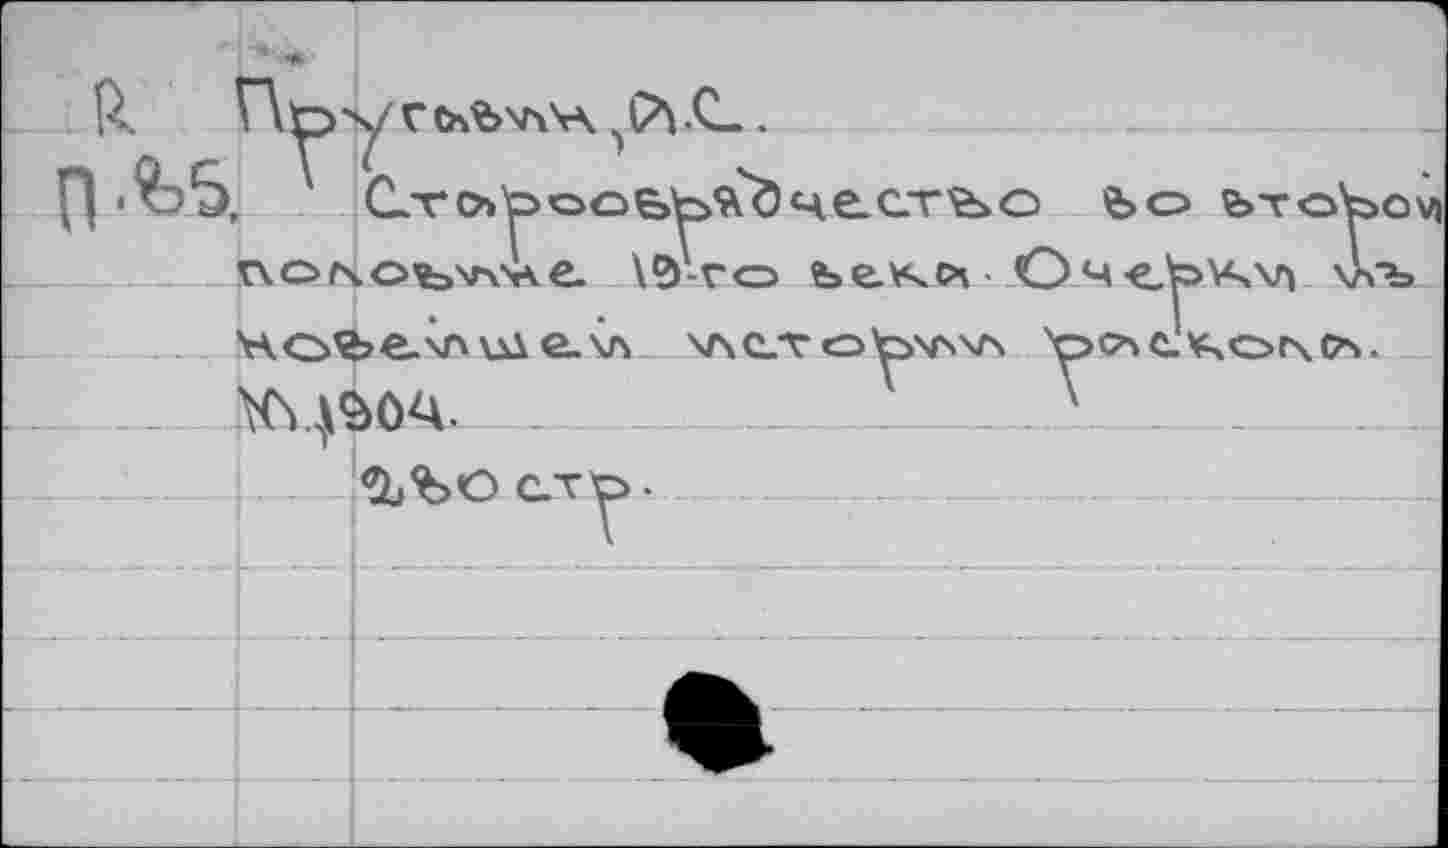 Я Пругавин, А.С.
П.85. Старообрядчество во второй
половине 19-го века. Очерки из
новейшей истории раскола.
М., 1904.
280 стр.